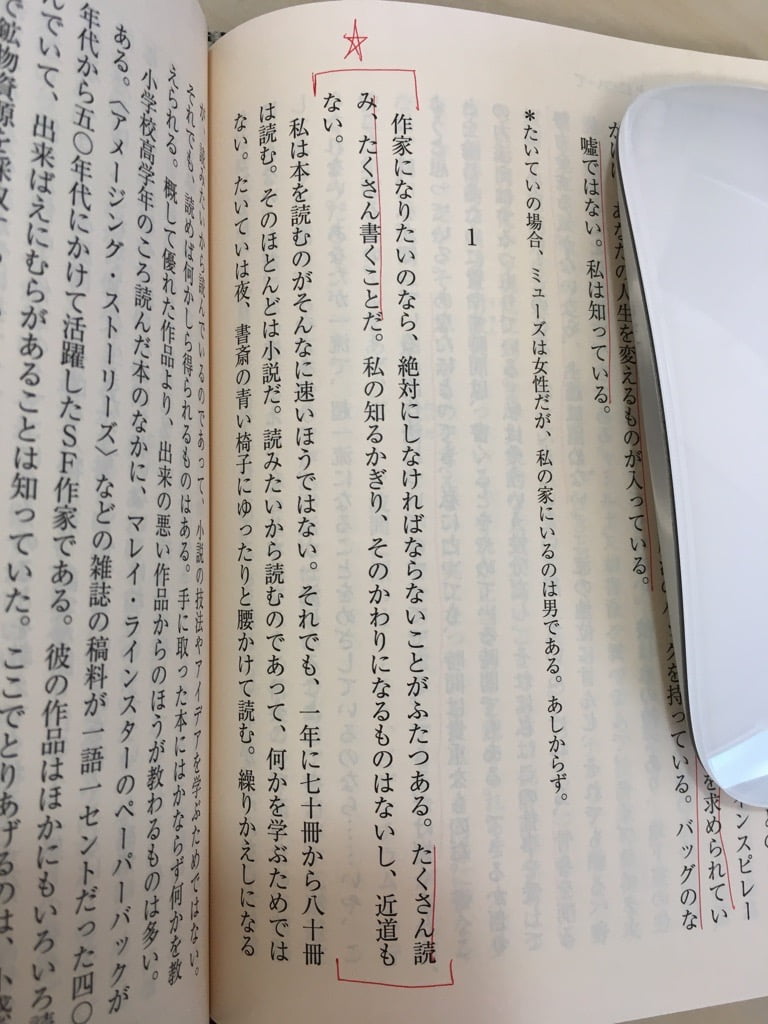 ンスピレー
を求められてい
を持っている。バッグのな
あなたの人生を変えるものが入っている。
嘘ではない。私は知っている。
*たいていの場合、ミューズは女性だが、私の家にいるのは男である。あしからず。
1
作家になりたいのなら、絶対にしなければならないことがふたつある。たくさん読
み、たくさん書くことだ。私の知るかぎり、そのかわりになるものはないし、近道も
ない。
私は本を読むのがそんなに速いほうではない。それでも、一年に七十冊から八十冊
は読む。そのほとんどは小説だ。読みたいから読むのであって、何かを学ぶためでは
ない。たいていは夜、書斎の青い椅子にゆったりと腰かけて読む。繰りかえしになる
が、読みたいから読んでいるのであって、小説の技法やアイデアを学ぶためではない。
それでも、読めば何かしら得られるものはある。手に取った本にはかならず何かを教
えられる。概して優れた作品より、出来の悪い作品からのほうが教わるものは多い。
小学校高学年のころ読んだ本のなかに、マレイ・ラインスターのペーパーバックが
ある。〈アメージング・ストーリーズ〉などの雑誌の稿料が一語一セントだった四〇
年代から五〇年代にかけて活躍したSF作家である。彼の作品はほかにもいろいろ読
んでいて、出来ばえにむらがあることは知っていた。ここでとりあげるのは、小惑
で鉱物資源を